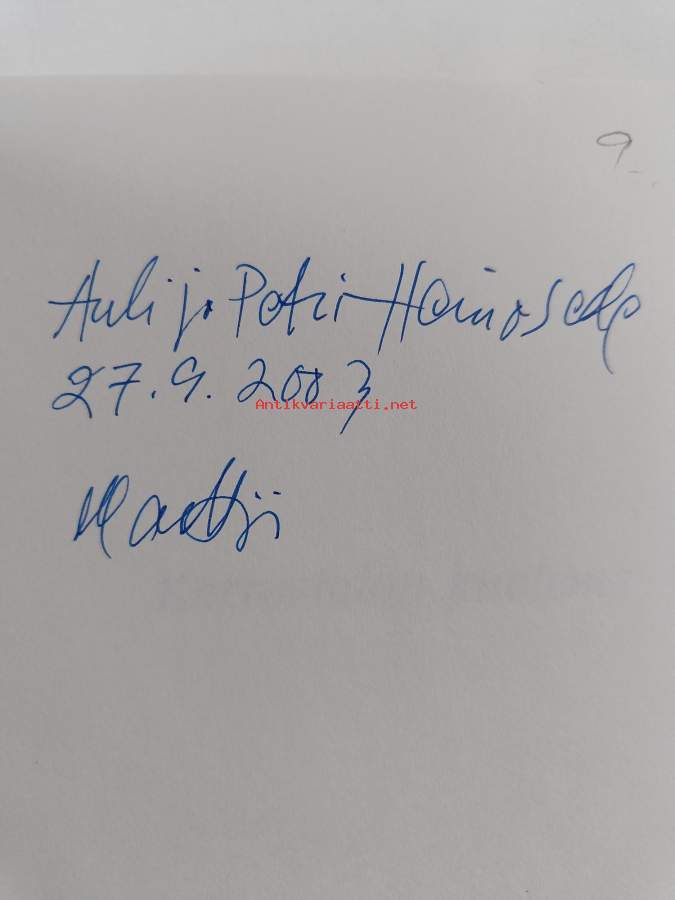 9
Auli ja Petri Heinoselle
27.9.2003
Antikvariaatti.net
Martti